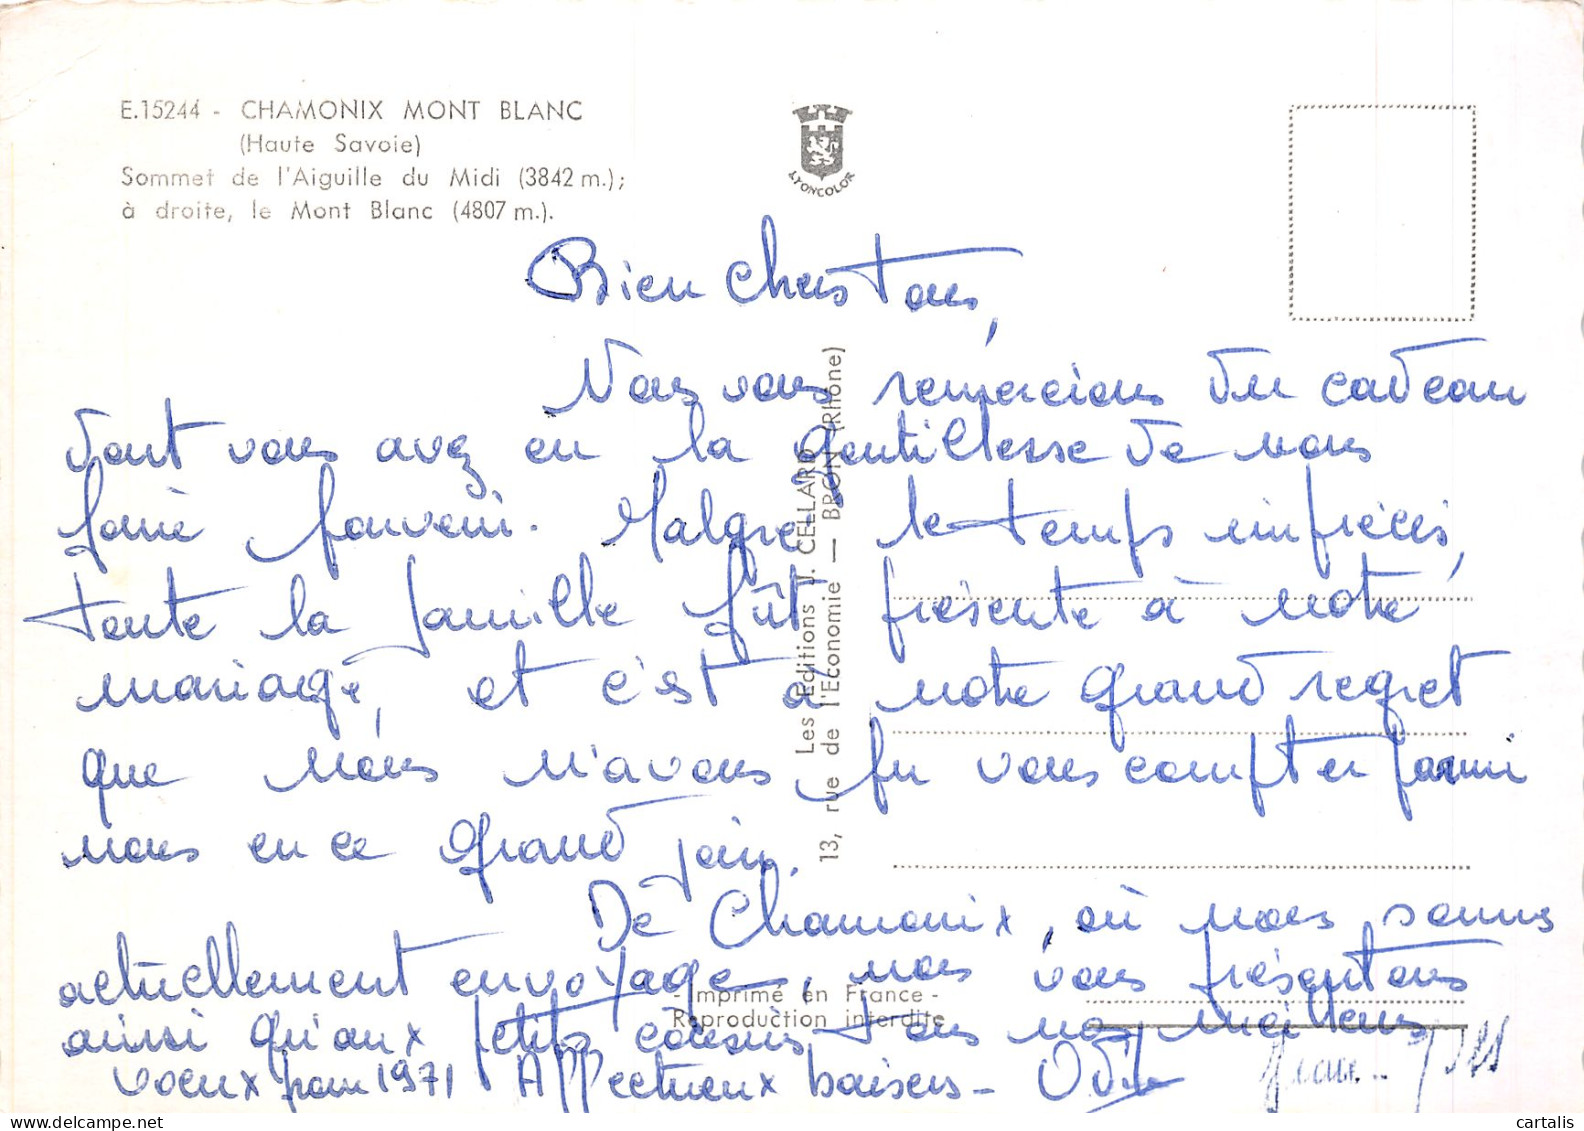 E.15244 - CHAMONIX MONT BLANC
(Haute Savoie)
Sommet de l'Aiguille du Midi (3842 m.);
à droite, le Mont Blanc (4807 m.).
LYONCOLOR
Bien chers tous,
Nous vous remercions du cadeau
dont vous avez eu la gentillesse de nous
faire parvenir. Malgré le temps imprécis,
toute la famille fût présente à notre
mariage, et c'est à notre grand regret
que nous n'avons pu vous compter parmi
nous en ce grand jour.
De Chamonix, où nous sommes
actuellement en voyage, nous vous présentons
ainsi qu'aux petits cousins tous nos meilleurs
voeux pour 1971 Affectueux baisers - Odile
Les Editions J. CELLARD
13, rue de l'Economie — BRON (Rhône)
- Imprimé en France -
Reproduction interdite
delcampe.net
cartalis